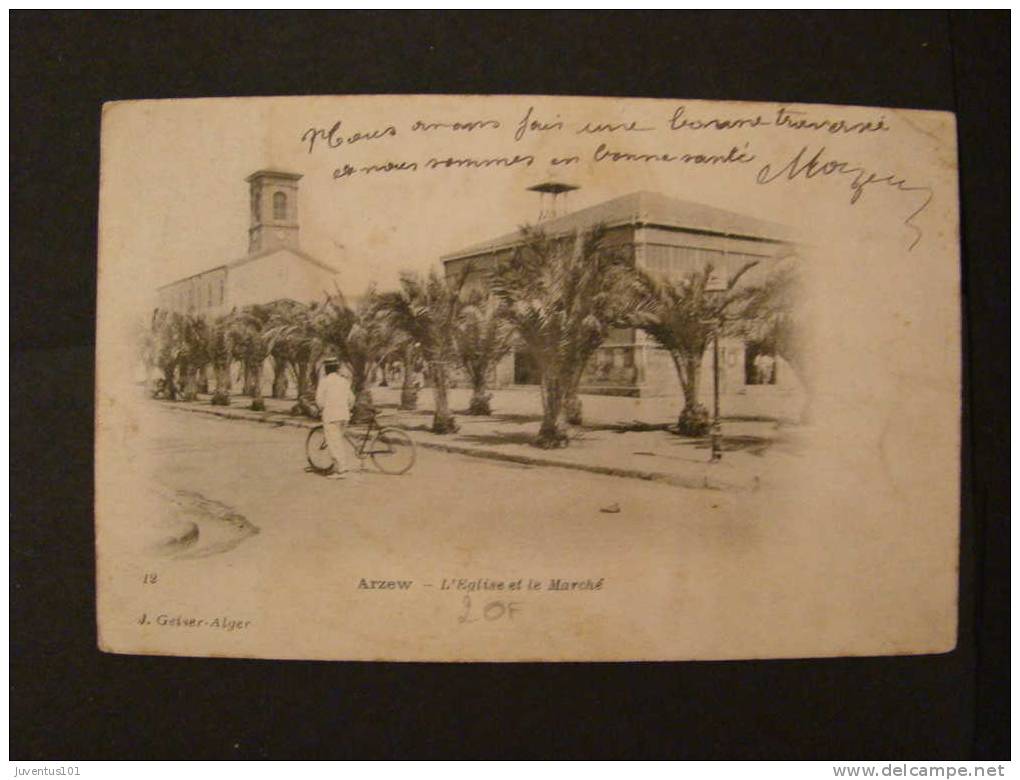 Nous avons fais une bonne traversé
et nous sommes en bonne santé
12
Arzew - L'Eglise et le Marché
20F
J. Geiser-Alger
juventus101
www.delcampe.net